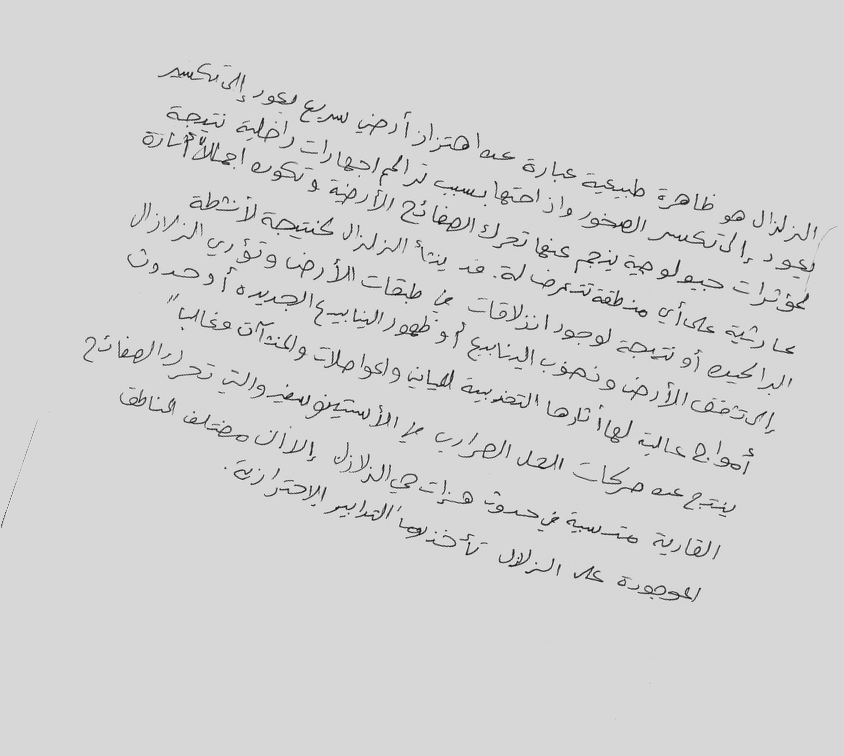 الزلزال هو ظاهرة طبيعية عبارة عن اهتزاز أرضي سريع يعود إلى تكسر
يعود إلى تكسر الصخور وازاحتها بسبب تراكم اجهادات داخلية نتيجة
لمؤثرات جيولوجية ينجم عنها تحرك الصفائح الأرضية وتكون اجمالاً
على أي منطقة تتعرض له. قد ينشأ الزلزال كنتيجة لأنشطة
البراكين أو نتيجة لوجود انزلاقات في طبقات الأرض وتؤدي الزلازال
إلى تشقق الأرض ونضوب الينابيع أو ظهور الينابيع الجديدة أو حدوث
أمواج عالية لها أثارها التخريبية للمباني والمواصلات والمنشآت وغالباً
ينتج عن حركات الحمل الحراري في الأستينوسفير والتي تحرك الصفائح
القارية متسببة في حدوث هزات هي الزلازل إلا أن مختلف المناطق
الموجودة على الزلازل تأخذ دوماً التدابير الإحترازية.